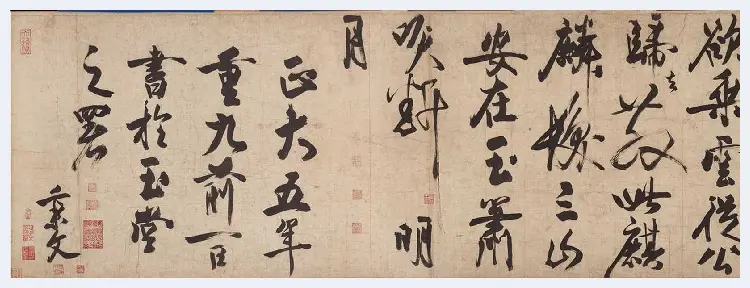 欲乘雲從公
歸去散此麒
麟髮三山
安在玉簫
吹斷明
月
正大五年
重九前一日
書於玉堂
之署
秉文